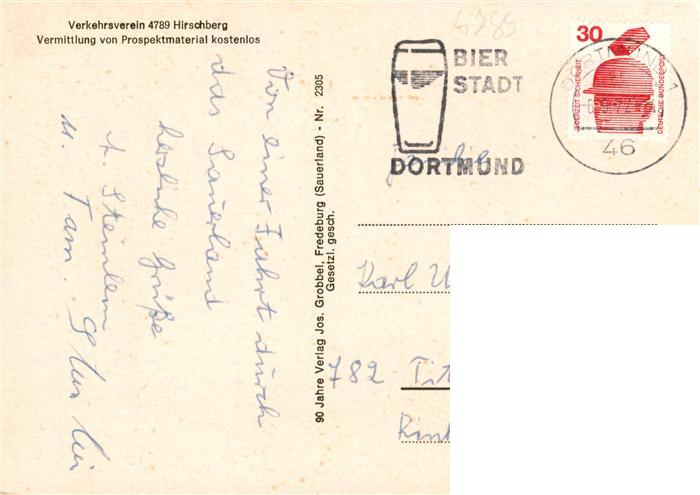 Verkehrsverein 4789 Hirschberg
Vermittlung von Prospektmaterial kostenlos
Von einer Fahrt durch
das Sauerland
herzliche Grüße
A. Steinlein
u. Fam.
90 Jahre Verlag Jos. Grobbel, Fredeburg (Sauerland) - Nr. 2305
Gesetzl. gesch.
4785
BIER
STADT
DORTMUND
30
JEDERZEIT SICHERHEIT
DEUTSCHE BUNDESPOST
DORTMUND 1
46
Karl
782